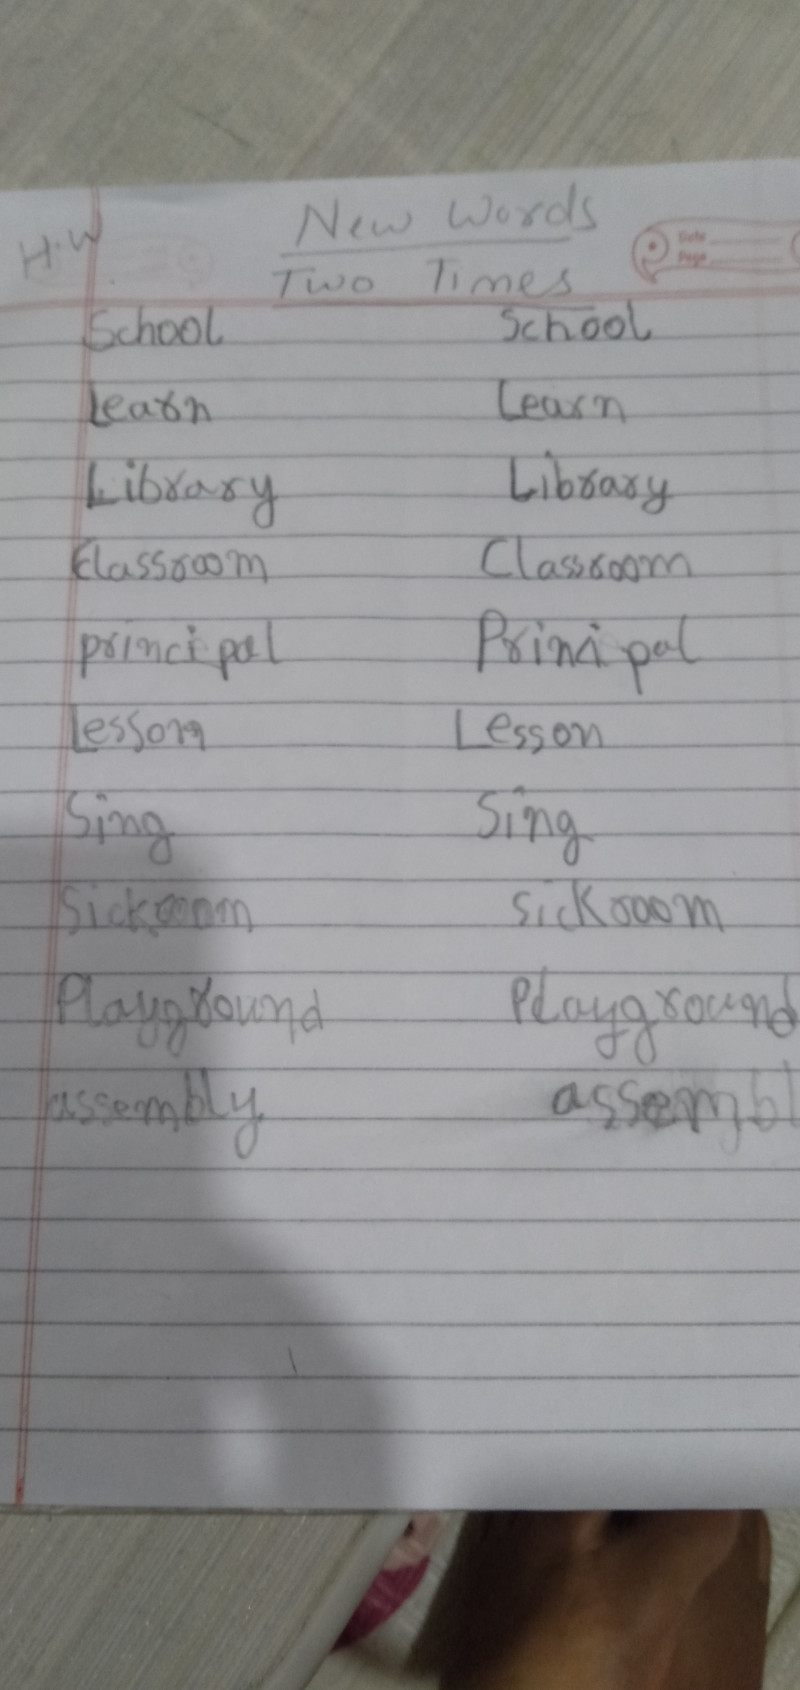 H.W
New Words
Two Times
Date
Page
School School
Learn Learn
Library Library
Classroom Classroom
principal Principal
Lesson Lesson
Sing Sing
Sickroom sickroom
Playground Playground
assembly assembl